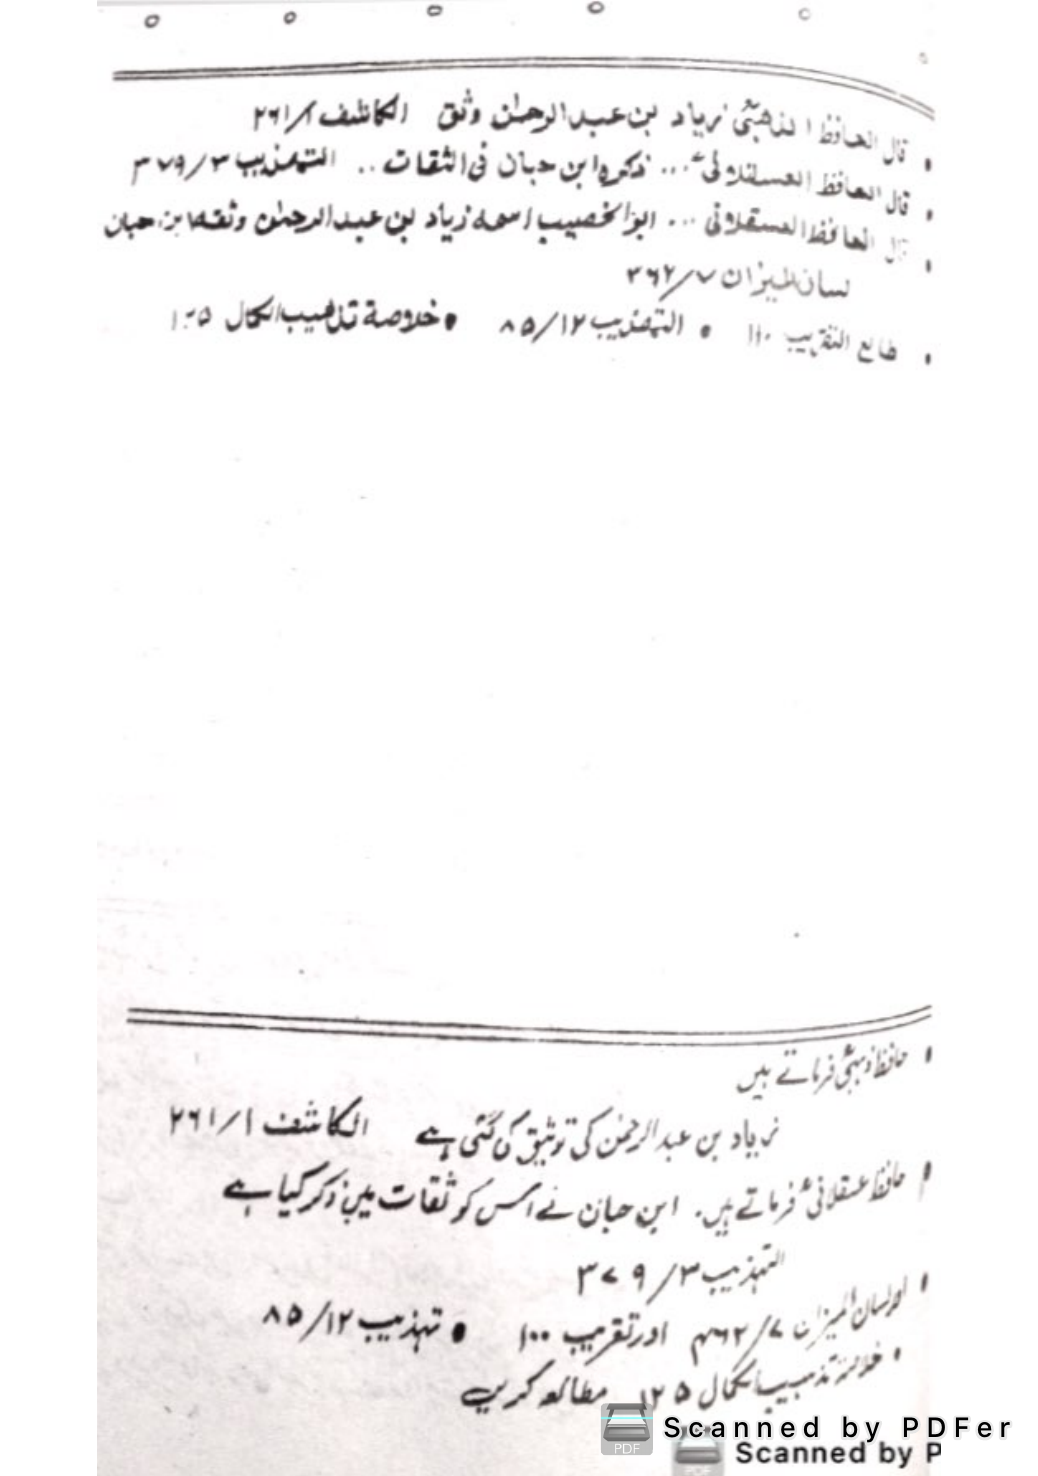 • قال الحافظ الذهبیؒ زیاد بن عبدالرحمٰن وثق الکاشف ۲۶۱/۱
• قال الحافظ العسقلانیؒ ... ذکرہ ابن حبان فی الثقات .. التہذیب ۳۷۹/۳
• قال الحافظ العسقلانی ... ابو الخصیب اسمہ زیاد بن عبدالرحمٰن وثقہ ابن حبان
لسان المیزان ۴۶۲/۷
• طالع التقریب ۱۱۰ • التہذیب ۸۵/۱۲ • خلاصۃ تذھیب الکمال ۱۲۵
• حافظ ذہبیؒ فرماتے ہیں
زیاد بن عبدالرحمٰن کی توثیق کی گئی ہے الکاشف ۲۶۱/۱
• حافظ عسقلانیؒ فرماتے ہیں۔ ابن حبان نے اس کو ثقات میں ذکر کیا ہے
التہذیب ۳۷۹/۳
• اور لسان المیزان ۴۶۲/۷ اور تقریب ۱۰۰ • تہذیب ۸۵/۱۲
• خلاصۃ تذہیب الکمال ۱۲۵ مطالعہ کریں
Scanned by PDFer
Scanned by P